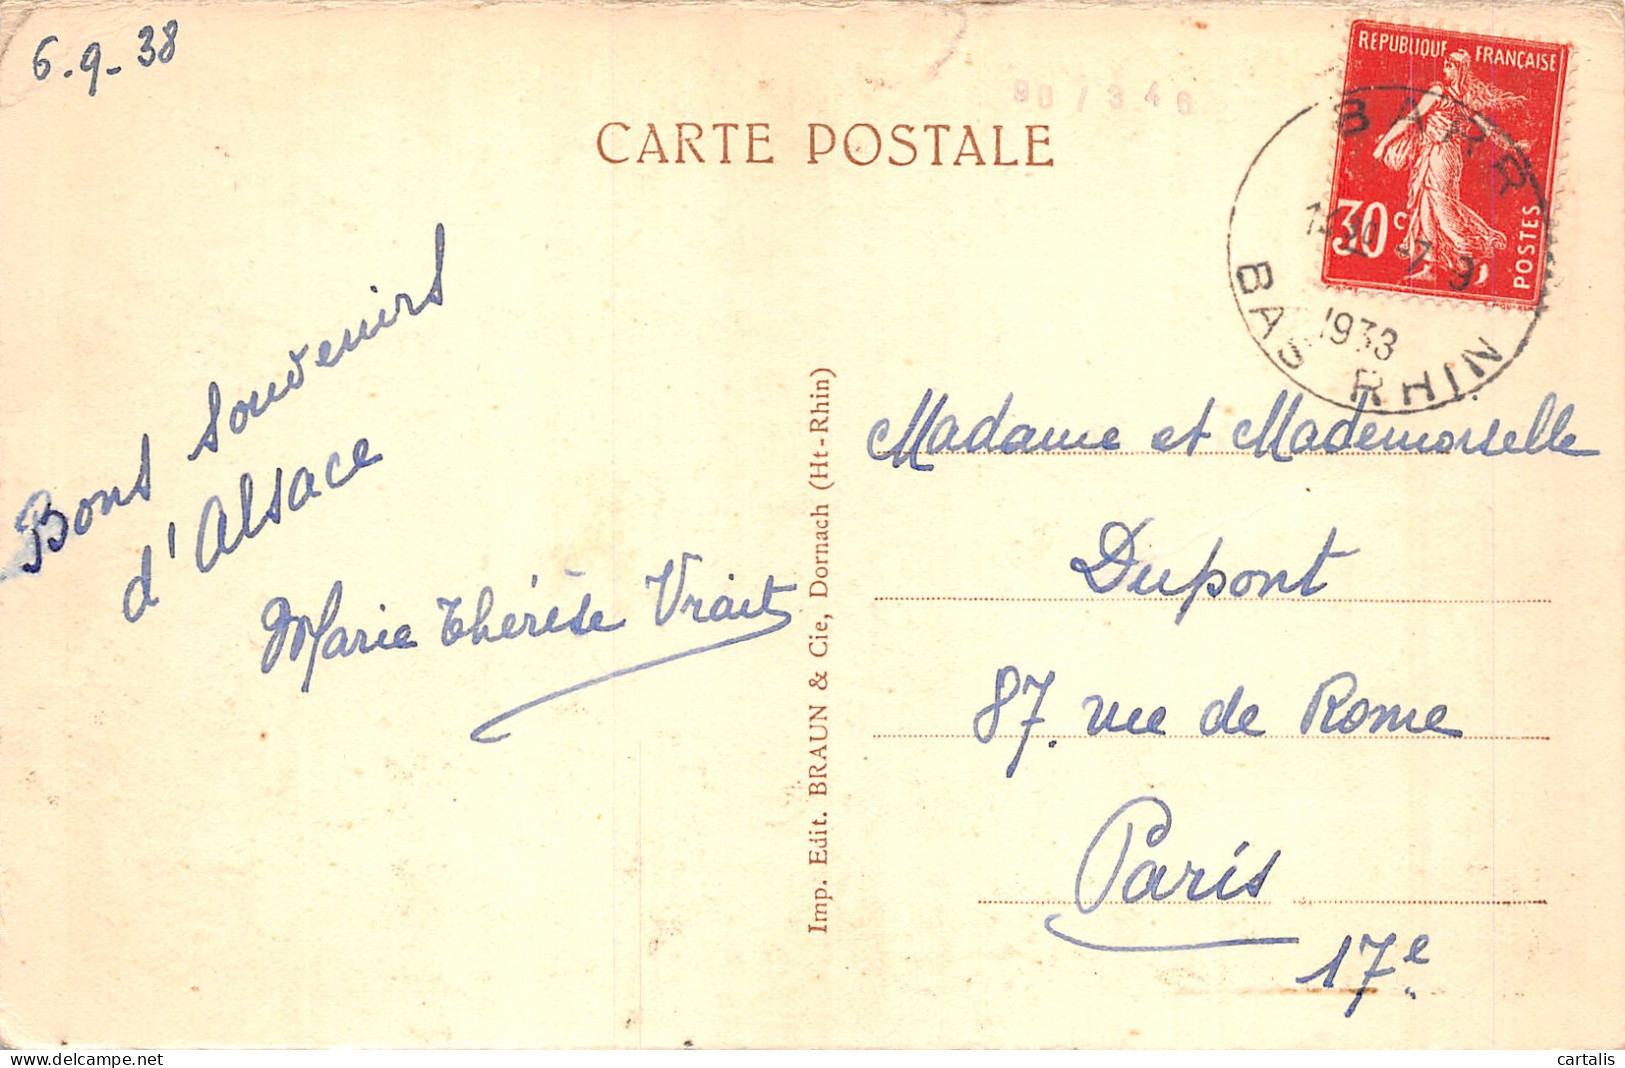 6.9.38
CARTE POSTALE
90/346
REPUBLIQUE FRANÇAISE
30c
POSTES
BARR
7 9
1938
BAS RHIN
Bons souvenirs
d'Alsace
Marie Thérèse
Imp. Edit. BRAUN & Cie, Dornach (Ht-Rhin)
Madame et Mademoiselle
Dupont
87. rue de Rome
Paris
17e
cartalis